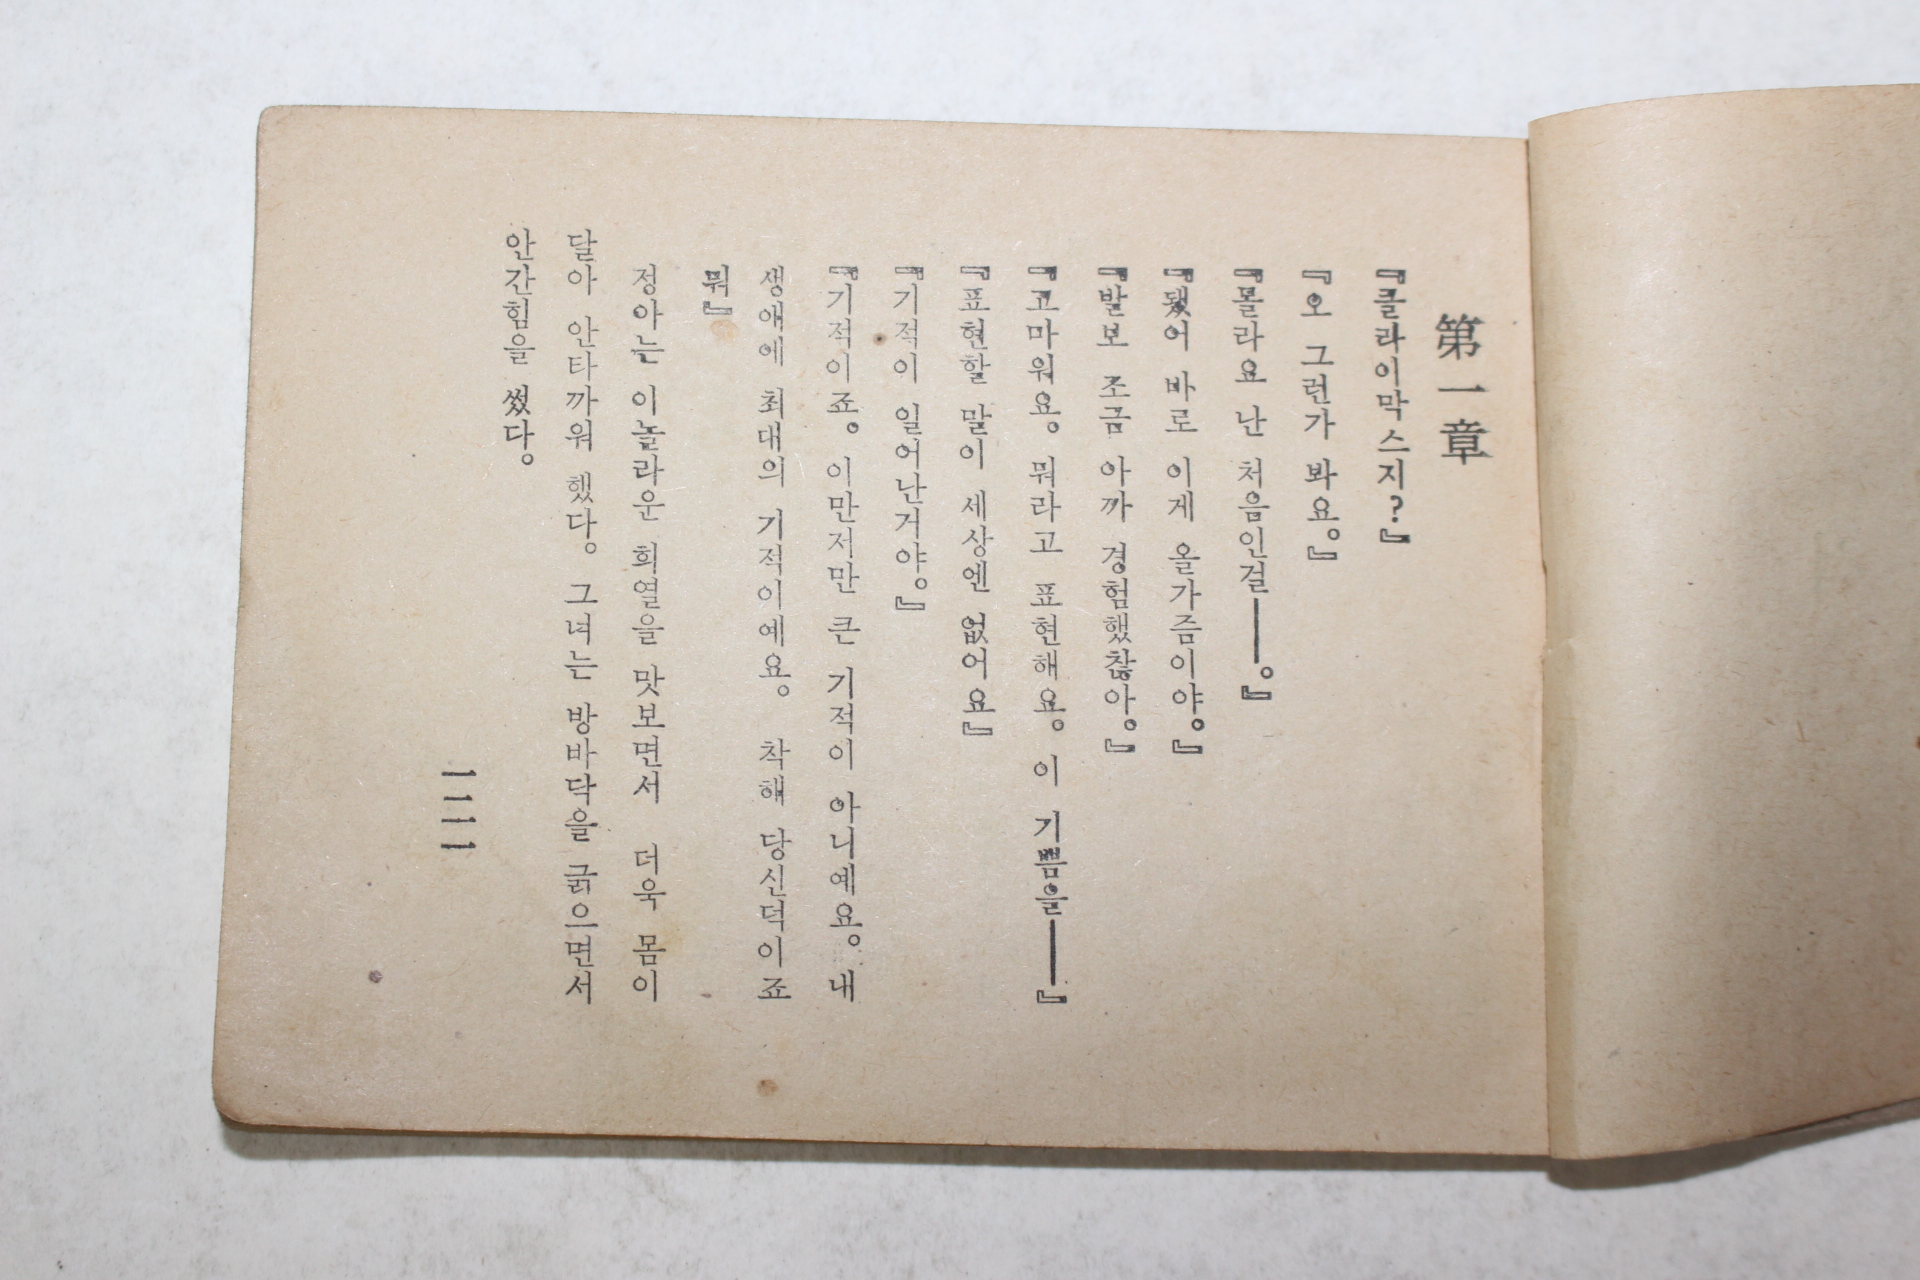 第一章
『클라이막스지?』
『오 그런가 봐요。』
『몰라요 난 처음인걸——。』
『됐어 바로 이게 올가즘이야。』
『발보 조금 아까 경험했찮아。』
『고마워요。 뭐라고 표현해요。 이 기쁨을——』
『표현할 말이 세상엔 없어요』
『기적이 일어난거야。』
『기적이죠。 이만저만 큰 기적이 아니예요。 내
생애에 최대의 기적이예요。 착해 당신덕이죠
뭐』
정아는 이놀라운 희열을 맛보면서 더욱 몸이
달아 안타까워 했다。 그녀는 방바닥을 긁으면서
안간힘을 썼다。